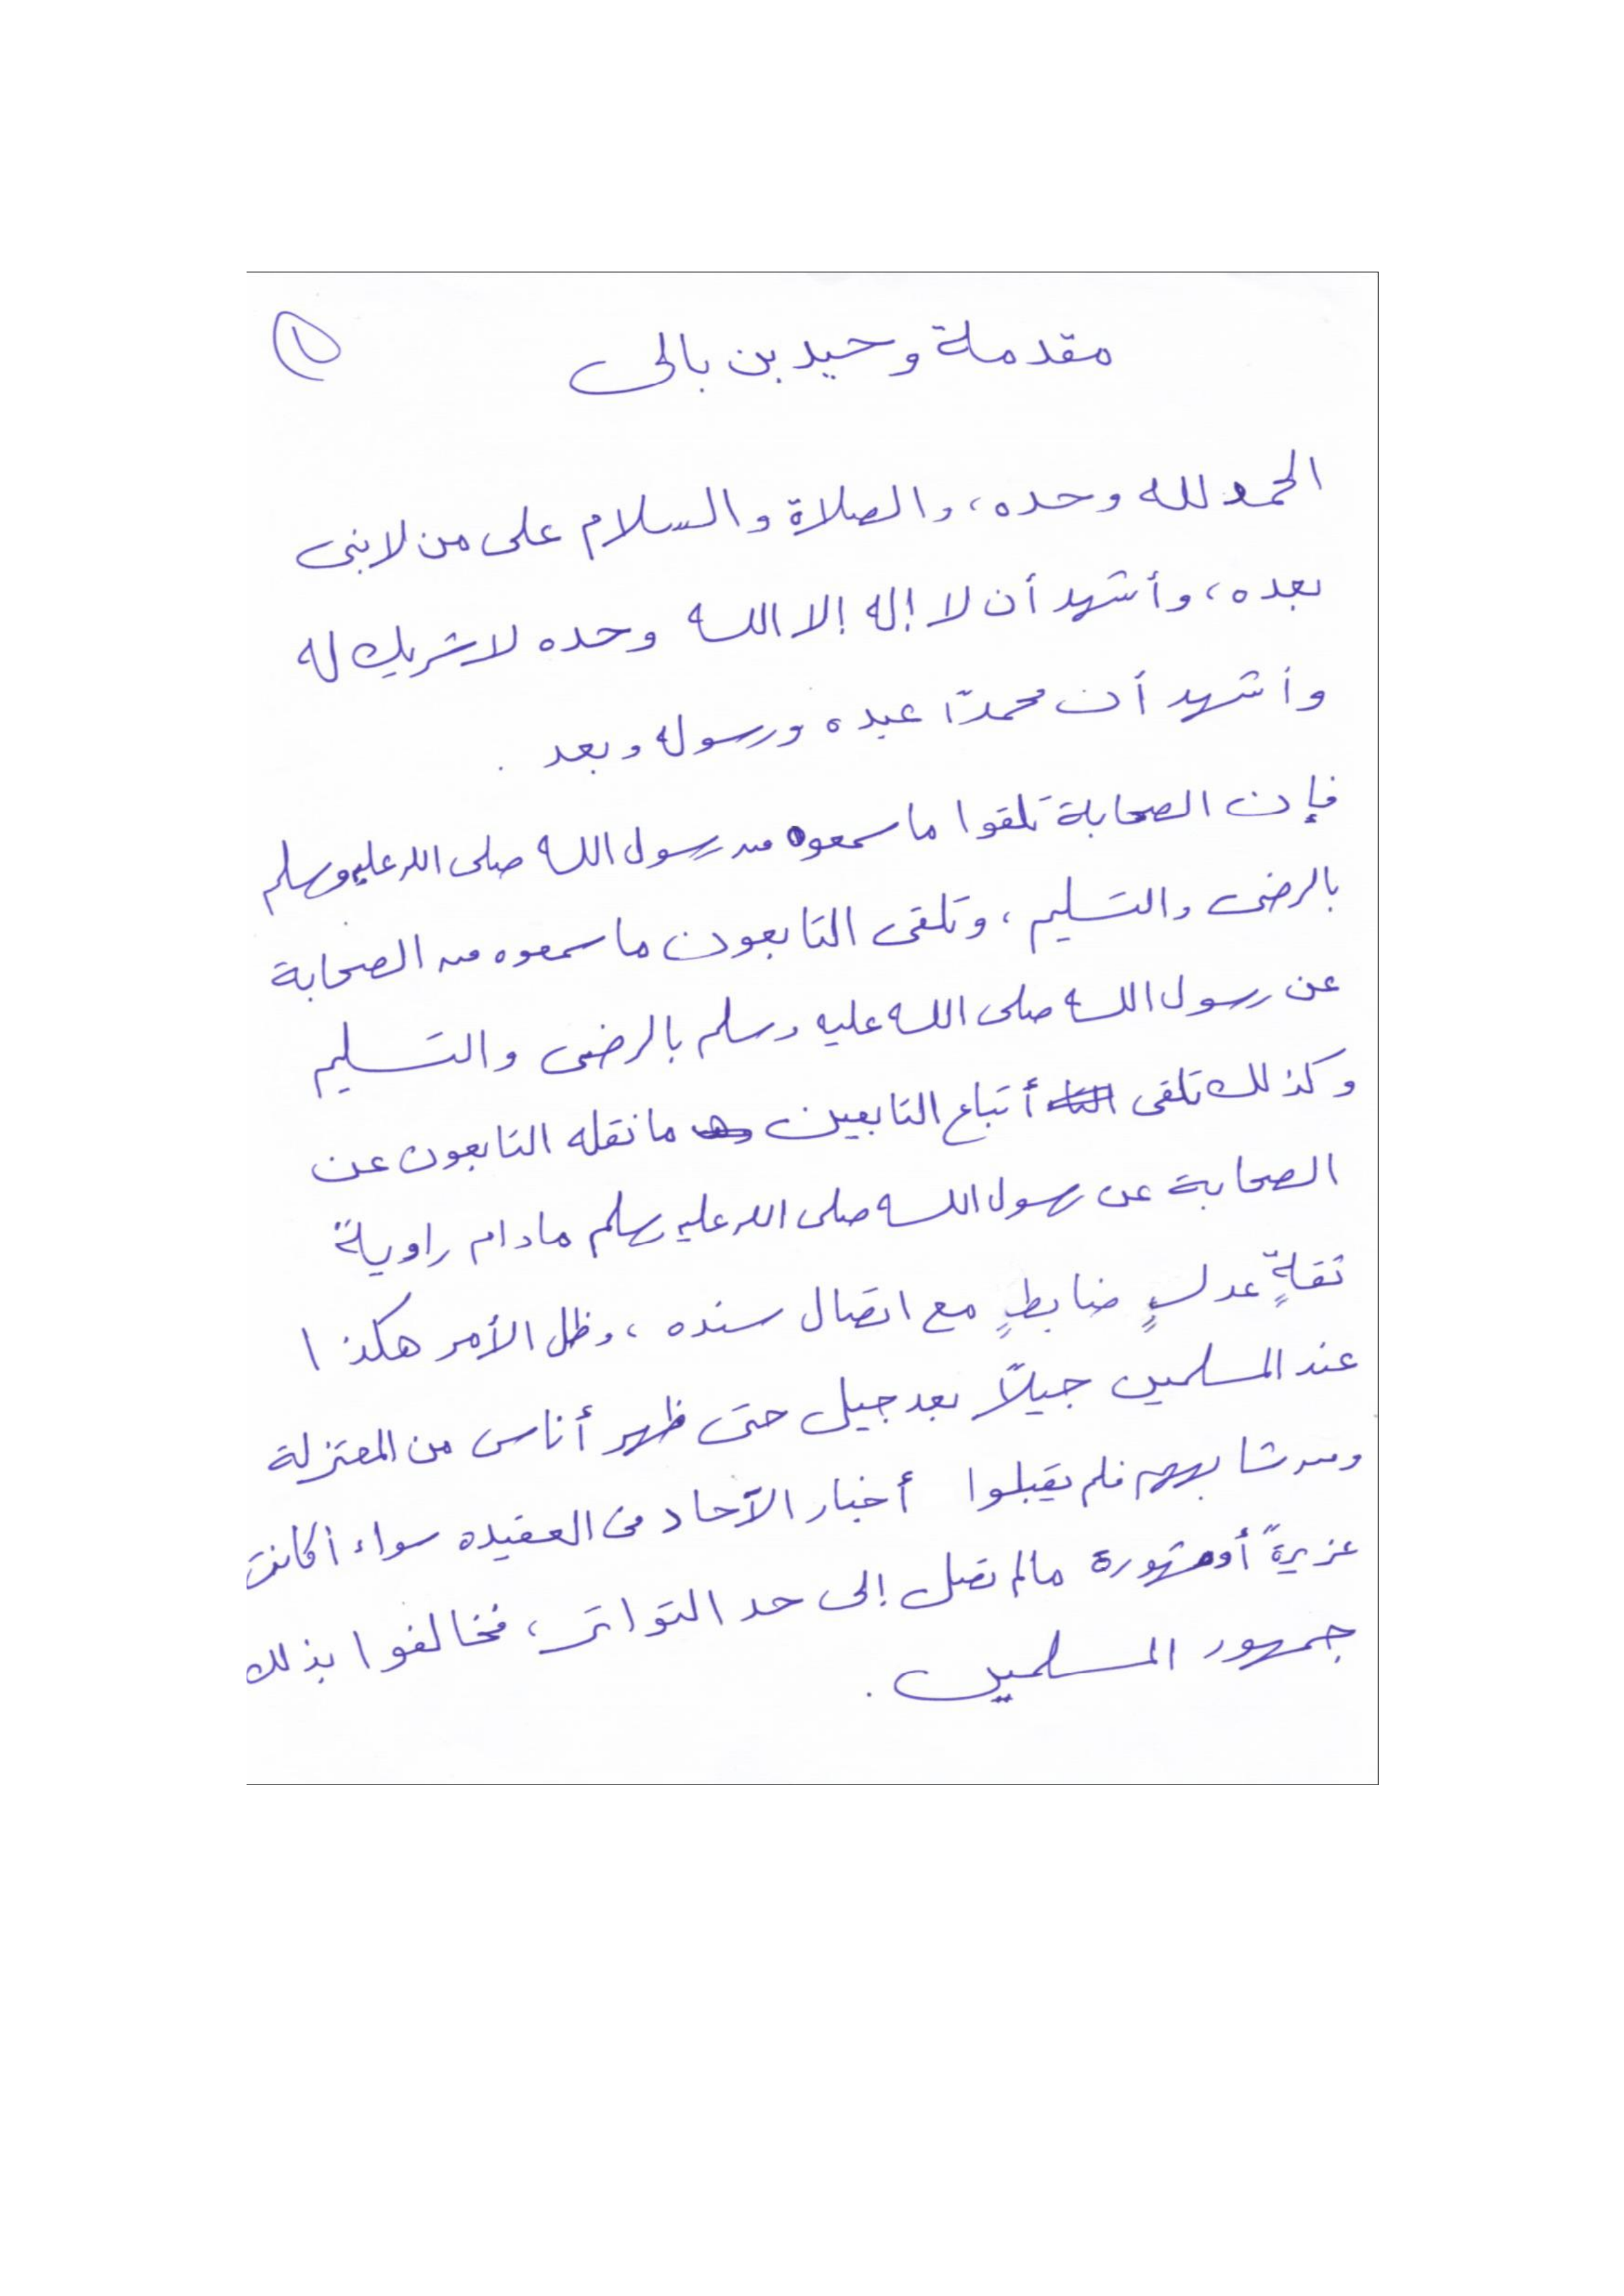 ١
مقدمة وحيد بن بالى
الحمد لله وحده، والصلاة والسلام على من لا نبى
بعده، وأشهد أن لا إله إلا الله وحده لا شريك له
وأشهد أن محمدًا عبده ورسوله وبعد .
فإن الصحابة تلقوا ما سمعوه من رسول الله صلى الله عليه وسلم
بالرضى والتسليم، وتلقى التابعون ما سمعوه من الصحابة
عن رسول الله صلى الله عليه وسلم بالرضى والتسليم
وكذلك تلقى أتباع التابعين ما نقله التابعون عن
الصحابة عن رسول الله صلى الله عليه وسلم مادام راويةً
ثقةٍ عدلٍ ضابطٍ مع اتصال سنده، وظل الأمر هكذا
عند المسلمين جيلاً بعد جيل حتى ظهر أناس من المعتزلة
ومن شابههم فلم يقبلوا أخبار الآحاد فى العقيده سواء أكانت
عزيزةً أو مشهورة مالم تصل إلى حد التواتر، فخالفوا بذلك
جمهور المسلمين .